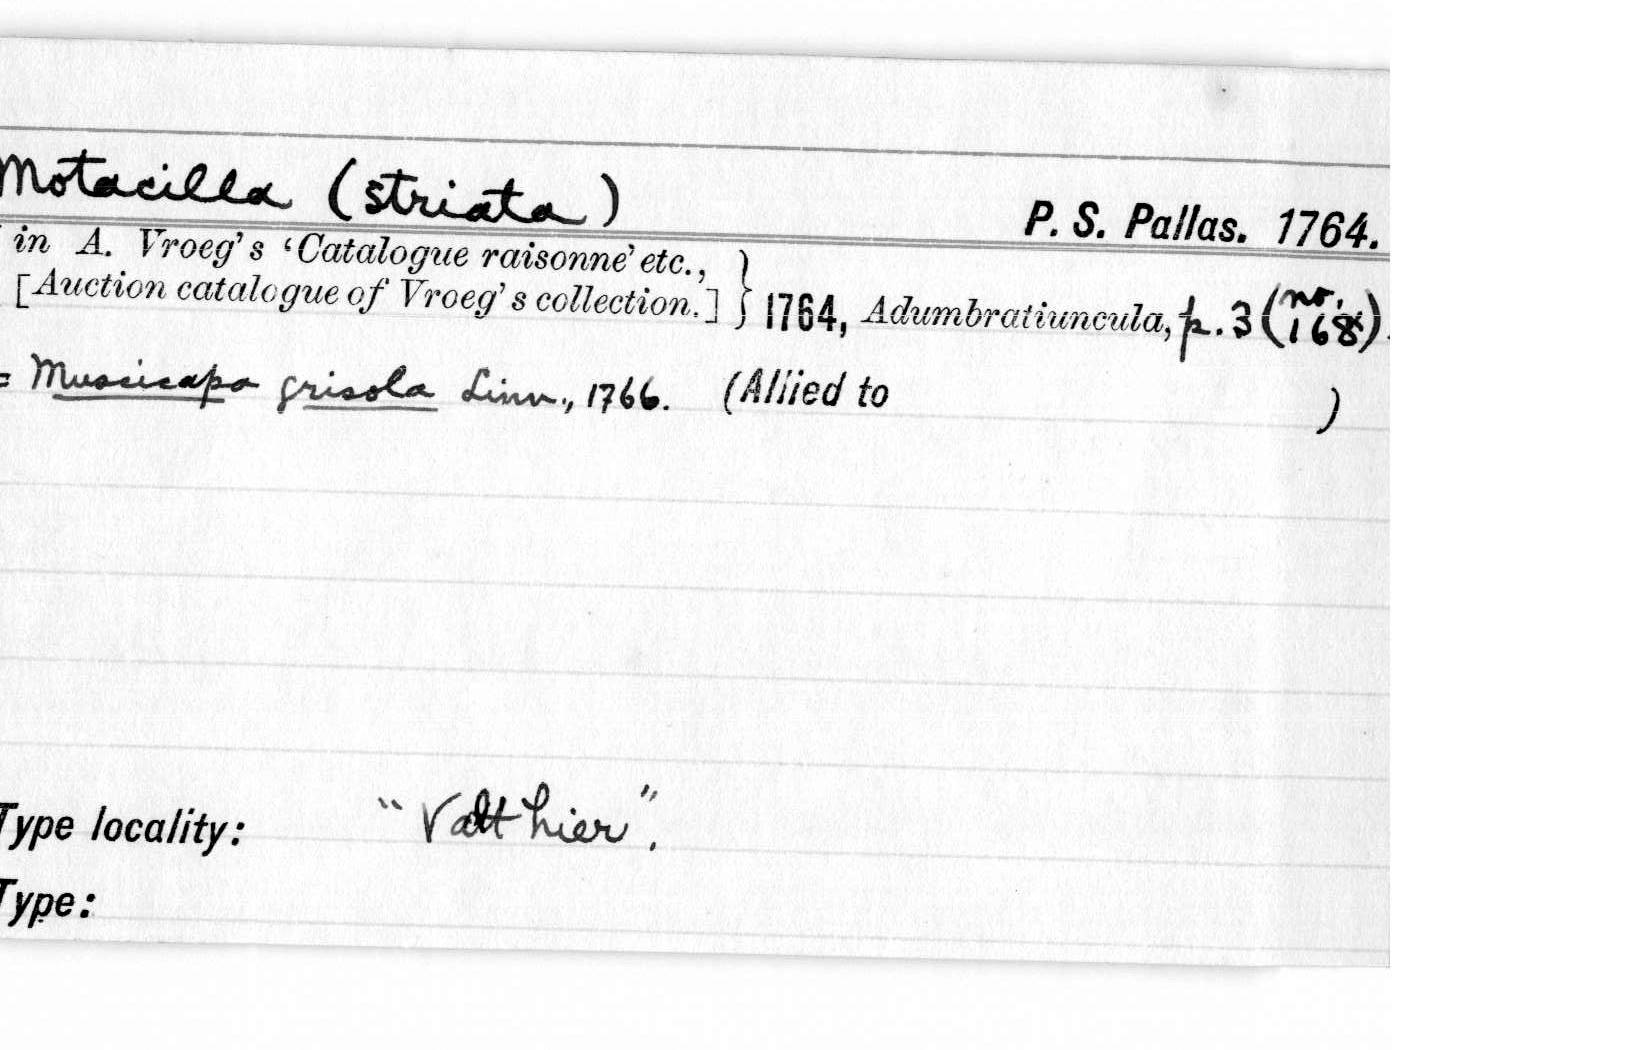 Motacilla (striata)
P. S. Pallas. 1764.
in A. Vroeg's ‘Catalogue raisonné’ etc.,
[Auction catalogue of Vroeg's collection.] } 1764, Adumbratiuncula, p. 3 (no. 168).
= Muscicapa grisola Linn., 1766. (Allied to )
Type locality: "Valt hier".
Type: